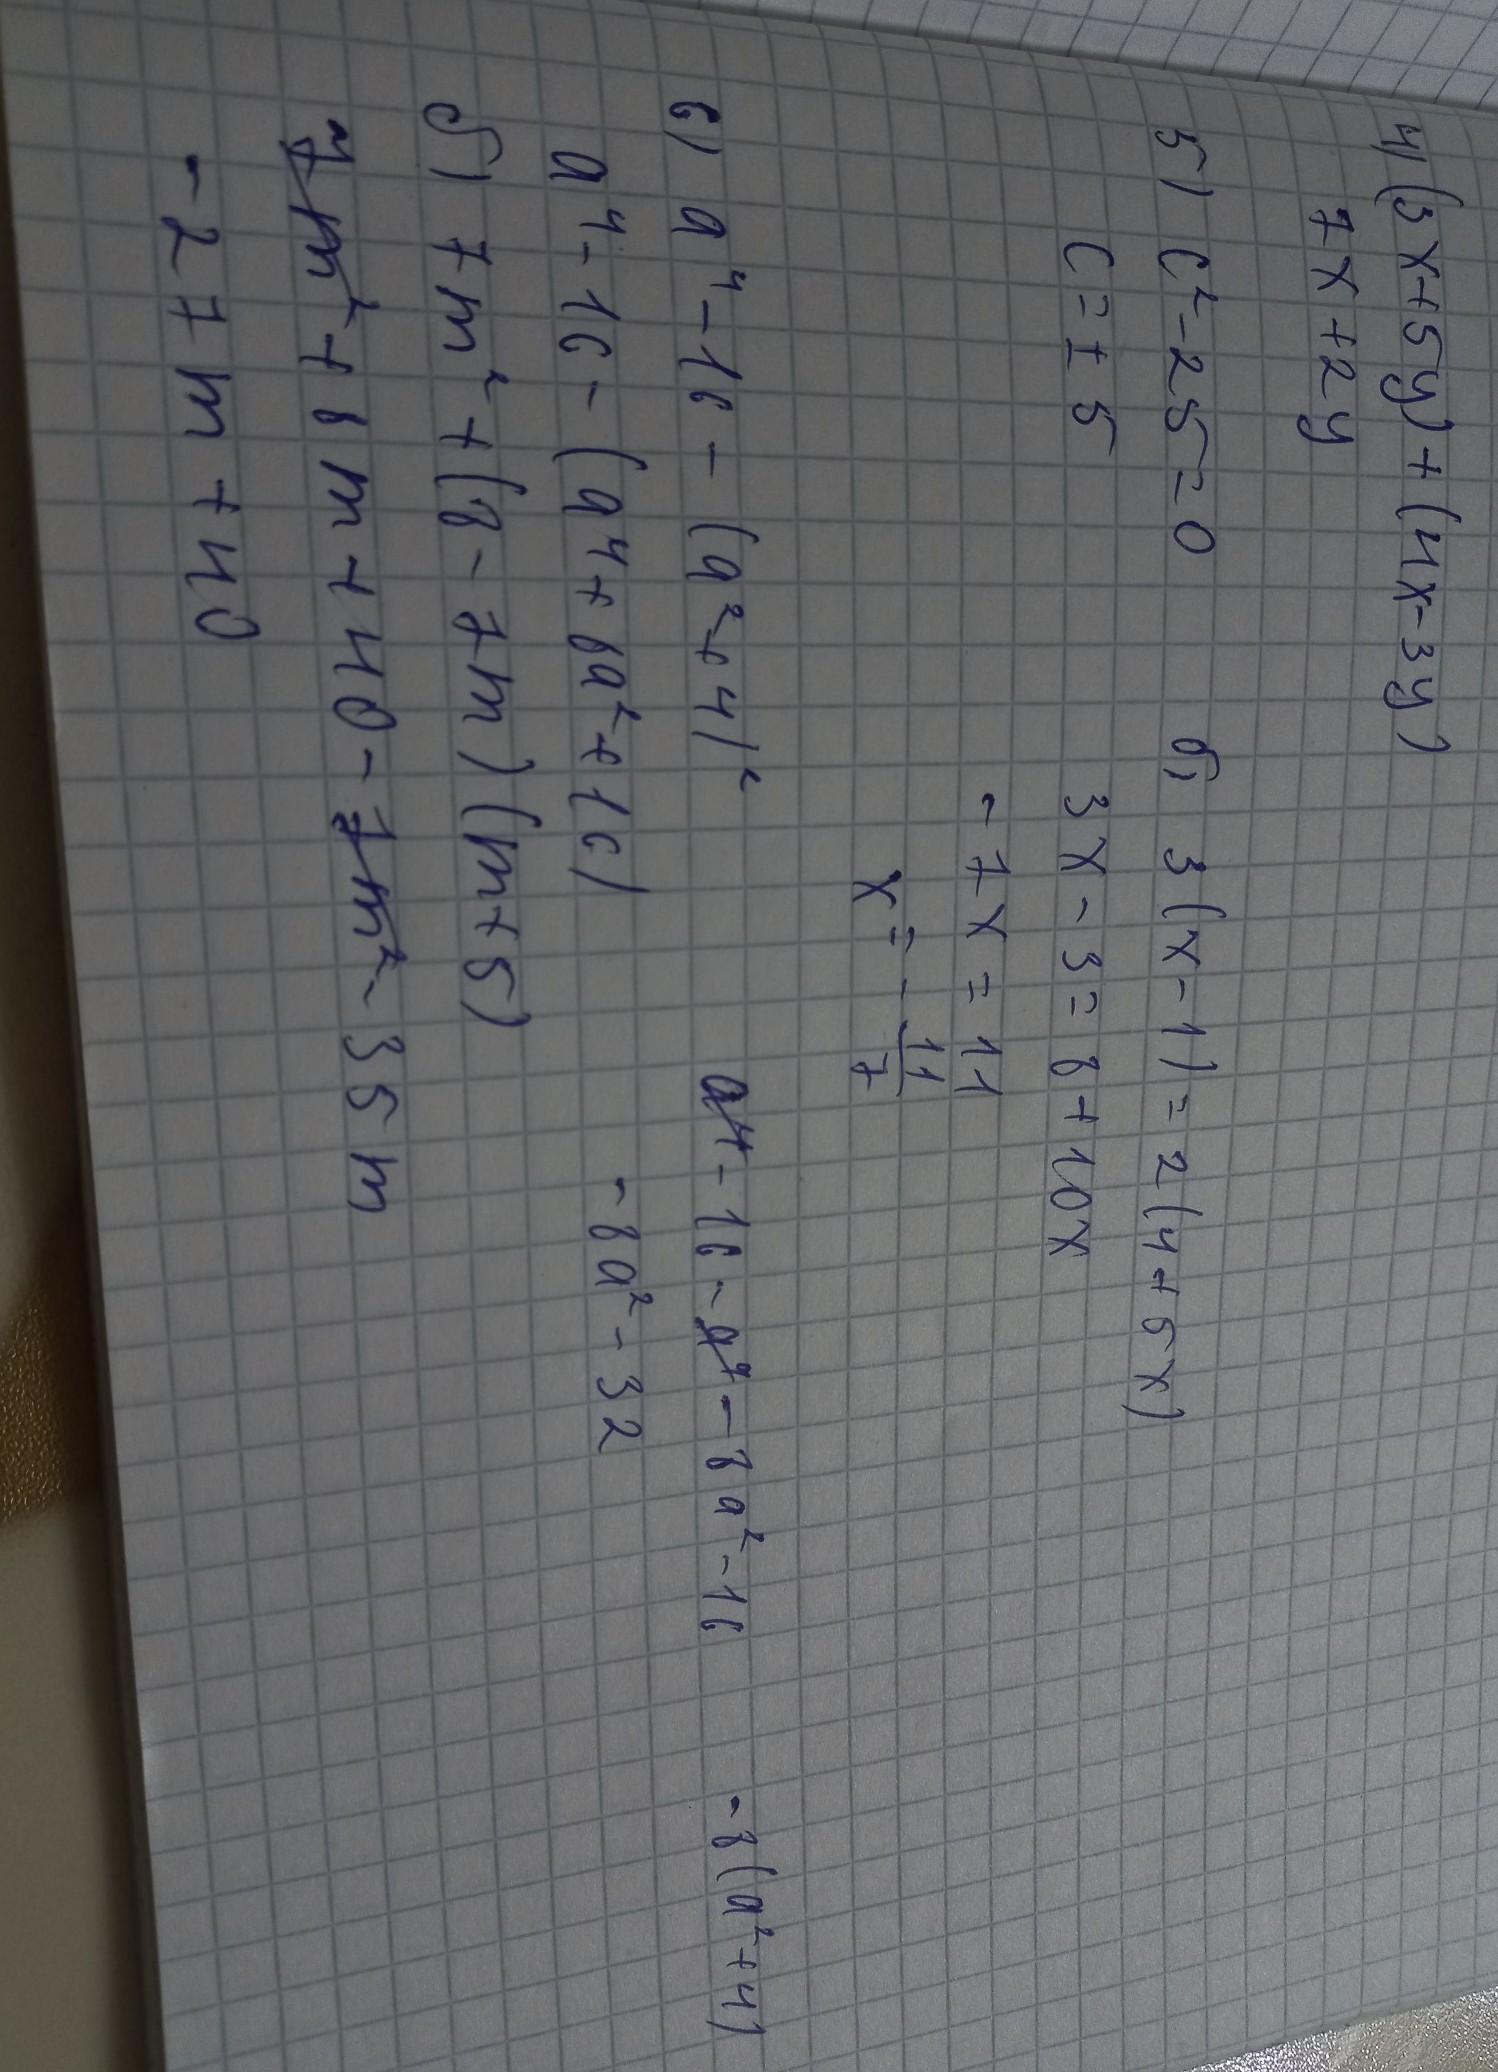 4) (3x+5y)+(4x-3y)
7x+2y
5) c²-25=0
c=±5
б) 3(x-1)=2(4+5x)
3x-3=8+10x
-7x=11
x=-11/7
6) a⁴-16-(a²+4)²
a⁴-16-(a⁴+8a²+16)
a⁴-16-a⁴-8a²-16
-8a²-32
-8(a²+4)
б) 7m²+(8-7m)(m+5)
7m²+8m+40-7m²-35m
-27m+40